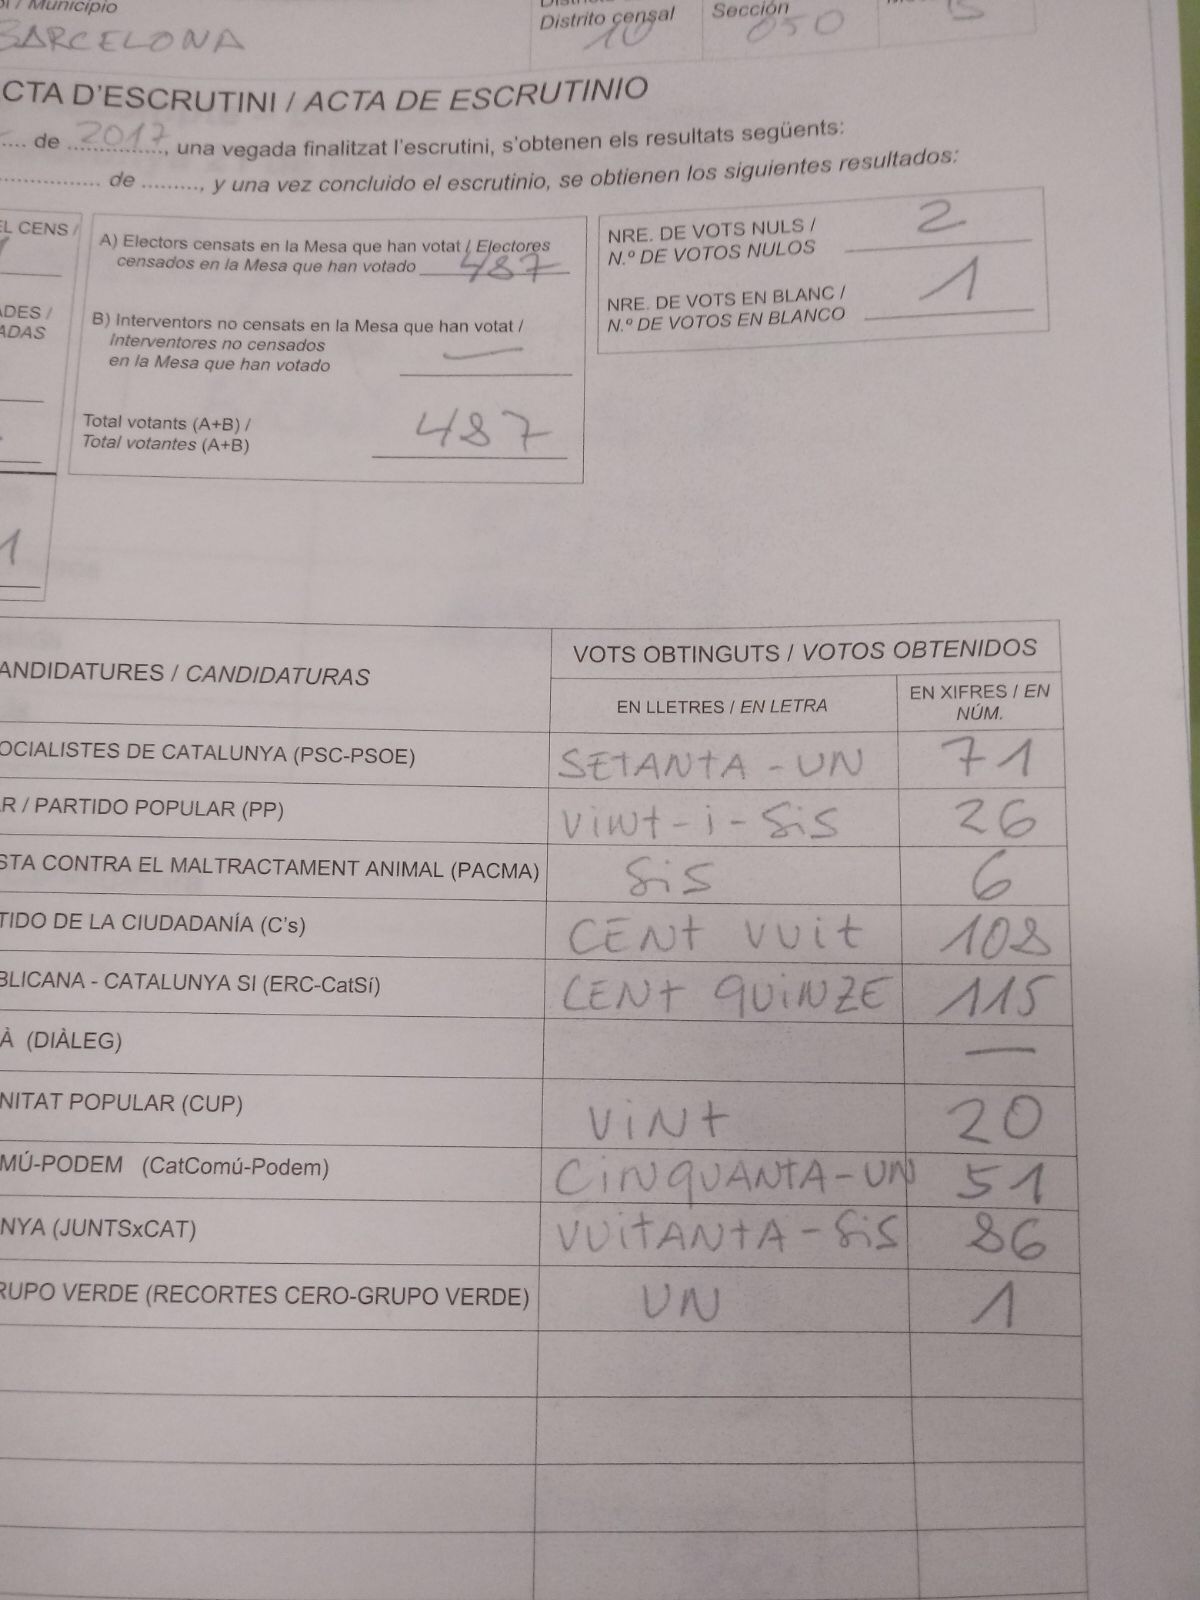 / Municipio
BARCELONA
Distrito censal
10
Sección
050
CTA D'ESCRUTINI / ACTA DE ESCRUTINIO
.... de 2017, una vegada finalitzat l'escrutini, s'obtenen els resultats següents:
.................. de ........., y una vez concluido el escrutinio, se obtienen los siguientes resultados:
EL CENS /
ADES /
ADAS
1
A) Electors censats en la Mesa que han votat / Electores
censados en la Mesa que han votado 487
B) Interventors no censats en la Mesa que han votat /
Interventores no censados
en la Mesa que han votado —
Total votants (A+B) /
Total votantes (A+B) 487
NRE. DE VOTS NULS /
N.º DE VOTOS NULOS 2
NRE. DE VOTS EN BLANC /
N.º DE VOTOS EN BLANCO 1
ANDIDATURES / CANDIDATURAS
VOTS OBTINGUTS / VOTOS OBTENIDOS
EN LLETRES / EN LETRA
EN XIFRES / EN
NÚM.
OCIALISTES DE CATALUNYA (PSC-PSOE) SETANTA-UN 71
R / PARTIDO POPULAR (PP) Vint-i-sis 26
STA CONTRA EL MALTRACTAMENT ANIMAL (PACMA) sis 6
TIDO DE LA CIUDADANÍA (C's) CENT VUIT 108
BLICANA - CATALUNYA SI (ERC-CatSí) CENT QUINZE 115
À (DIÀLEG) —
NITAT POPULAR (CUP) VINT 20
MÚ-PODEM (CatComú-Podem) CINQUANTA-UN 51
NYA (JUNTSxCAT) VUITANTA-SIS 86
RUPO VERDE (RECORTES CERO-GRUPO VERDE) UN 1